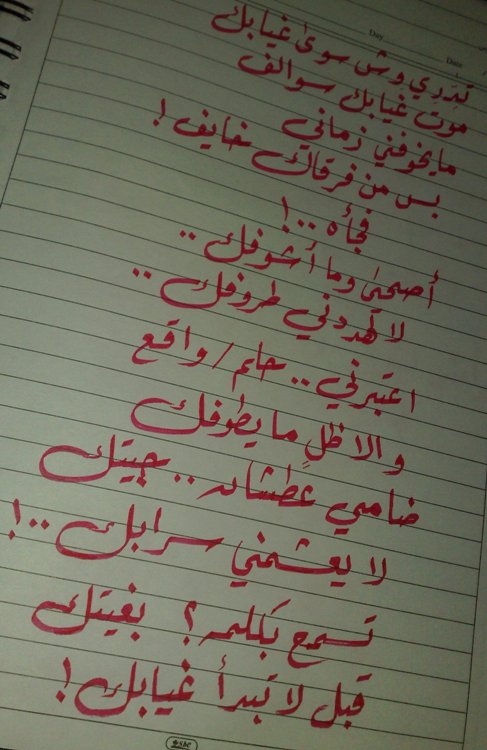 Day
Date
تدري وش سوى غيابك
موت غيابك سوالف
مايخوفني زماني
بس من فرقاك خايف !
فجأه ..!
أصحى وما أشوفك ..
لا تهددني ظروفك ..
اعتبرني .. حلم / واقع
والا ظلٍ ما يطوفك
ضامي عطشان .. جيتك
لا يعشمني سرابك ..!
تسمع بكلمه ؟ بغيتك
قبل لا تبدأ غيابك !